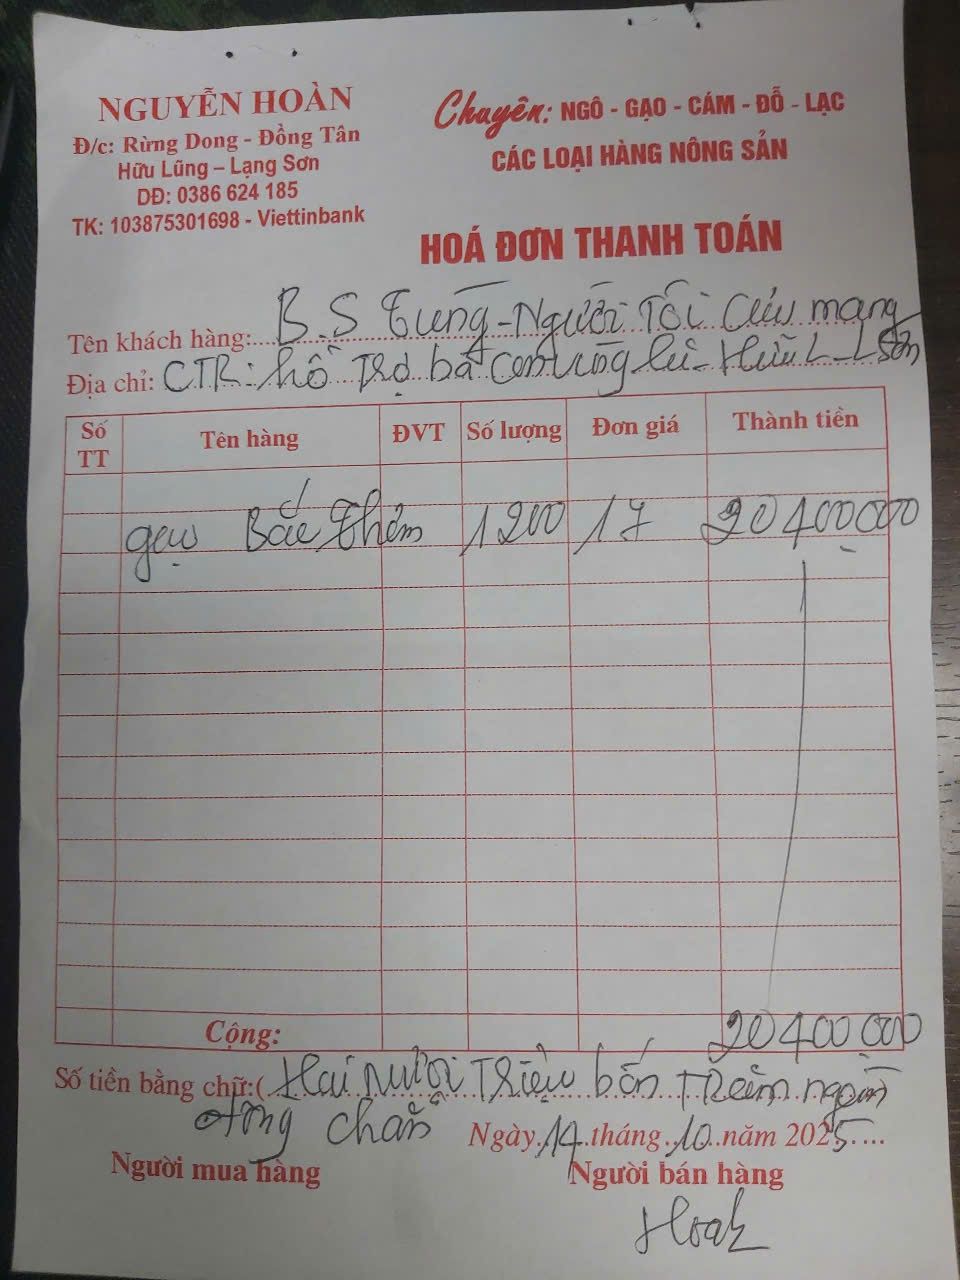 NGUYỄN HOÀN
Đ/c: Rừng Dong - Đồng Tân
Hữu Lũng – Lạng Sơn
DĐ: 0386 624 185
TK: 103875301698 - Viettinbank
Chuyên: NGÔ - GẠO - CÁM - ĐỖ - LẠC
CÁC LOẠI HÀNG NÔNG SẢN
HOÁ ĐƠN THANH TOÁN
Tên khách hàng: B.S Tùng - Người Tôi Cưu mang
Địa chỉ: CTR: hỗ Trợ bà con vùng lũ - Hữu L - L Sơn
Số TT Tên hàng ĐVT Số lượng Đơn giá Thành tiền
gạo Bắc thơm 1200 17 20400000
Cộng: 20400000
Số tiền bằng chữ:( Hai Mươi Triệu bốn Trăm ngàn
đồng chẵn
Ngày 14 tháng 10 năm 2025
Người mua hàng Người bán hàng